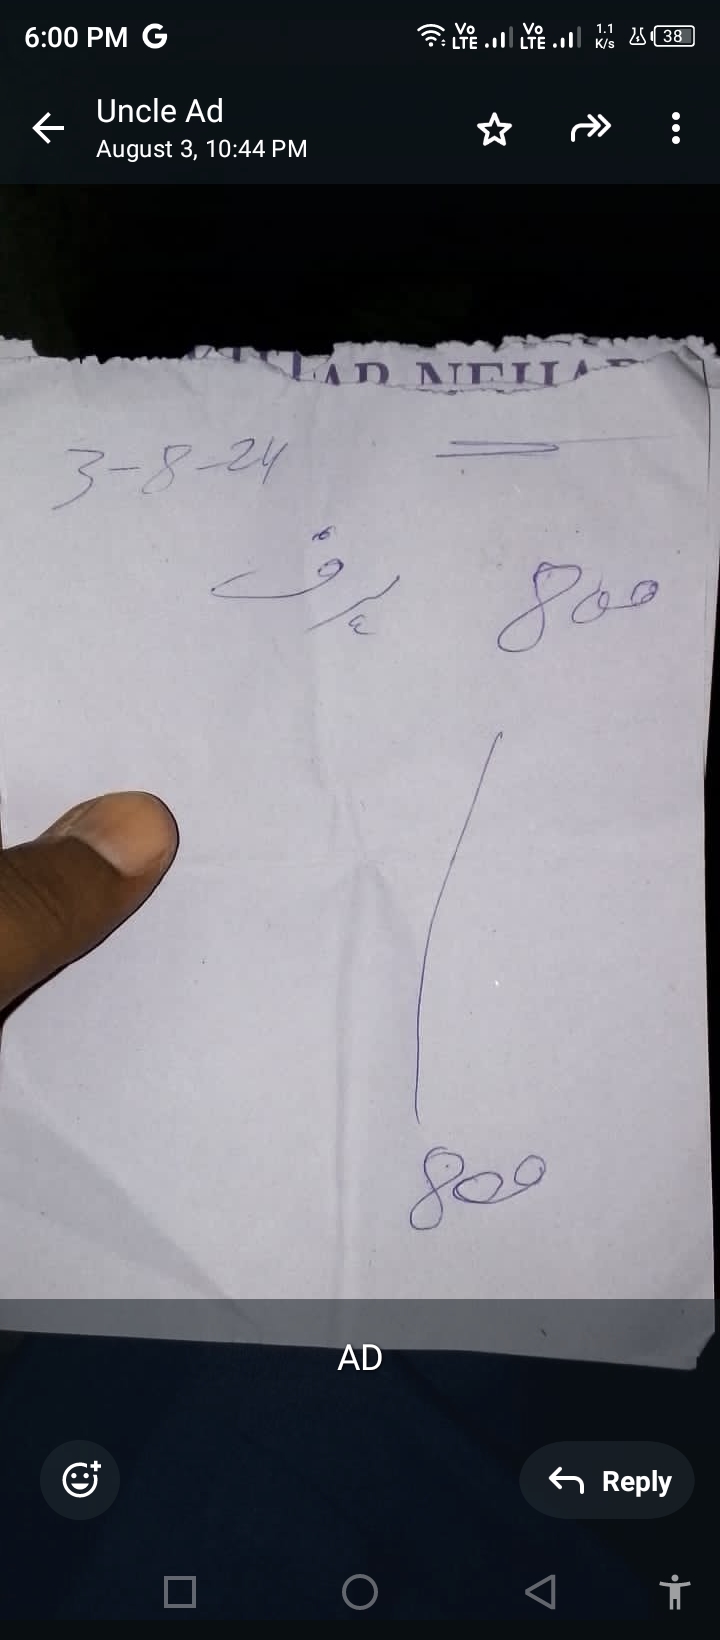 6:00 PM G
Vo LTE Vo LTE 1.1 K/s 38
Uncle Ad
August 3, 10:44 PM
3-8-24
برف 800
800
AD
Reply